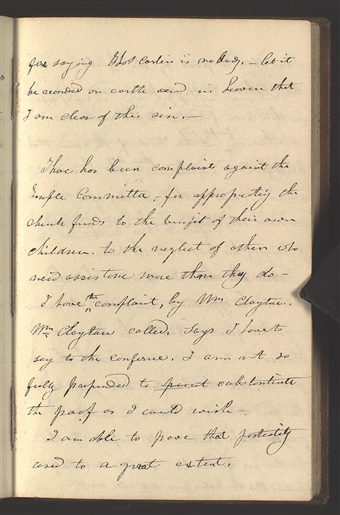 for saying Thos Carlin is no body, – let it
be recorded on earth and in Heaven that
I am clear of this sin. –
Thare has been complaints against the
Temple Committee. for appropriating the
church funds to the benefit of their own
children. to the neglect of others who
need assistance more than they do. –
I have the complaint, by Wm Clayton.
Wm Clayton called. Says I have to
say to the conference. I am not so
fully prepared to substantiate
the proof as I could wish –
I am able to prove that partiality
used to a great extent.